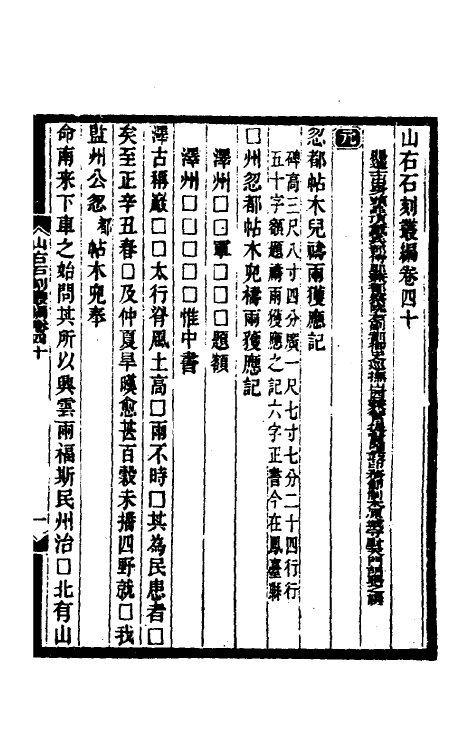 山右石刻叢編卷四十
元
忽都帖木兒禱雨獲應記
碑高三尺八寸四分廣一尺七寸七分二十四行行
五十字額題禱雨獲應之記六字正書今在鳳臺縣
□州忽都帖木兒禱雨獲應記
澤州□□軍□□題額
澤州□□□□□惟中書
澤古稱巖□□太行脊風土高□雨不時□其為民患者□
矣至正辛丑春□及仲夏旱暵愈甚百穀未播四野就□我
監州公忽都帖木兒奉
命南來下車之始問其所以興雲雨福斯民州治□北有山
山右石刻叢編卷四十
一